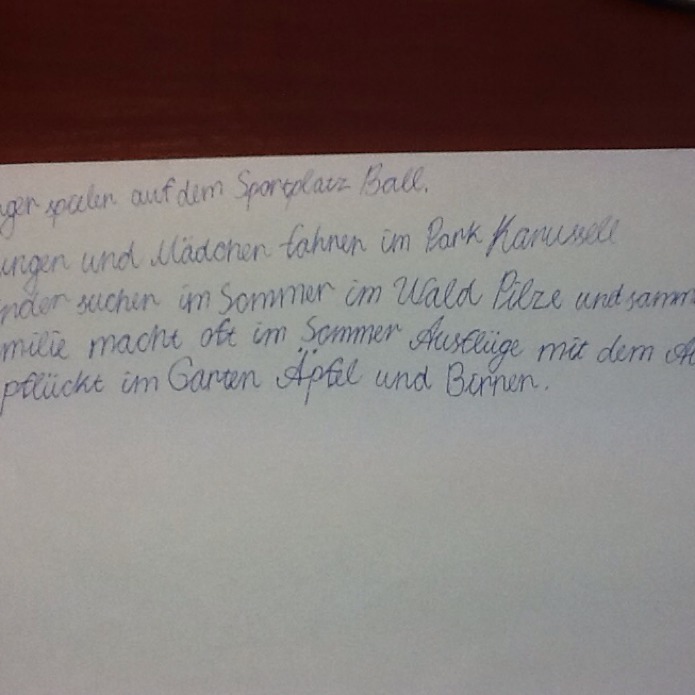 nger spielen auf dem Sportplatz Ball.
ungen und Mädchen fahren im Park Karussell
inder suchen im Sommer im Wald Pilze und samm
milie macht oft im Sommer Ausflüge mit dem A
pflückt im Garten Äpfel und Birnen.